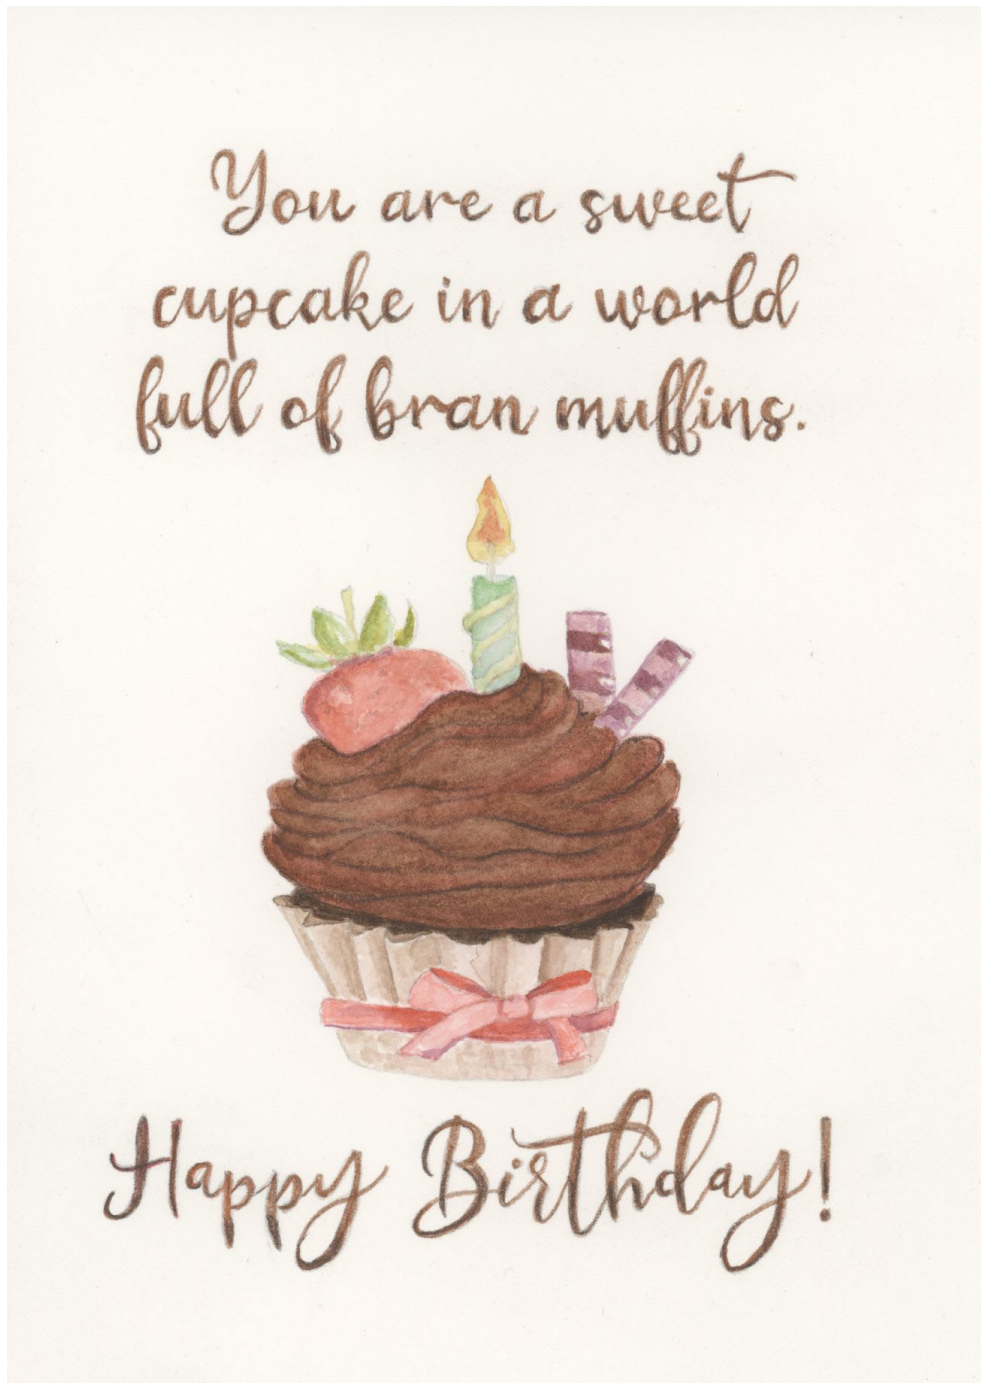 You are a sweet
cupcake in a world
full of bran muffins.
Happy Birthday!